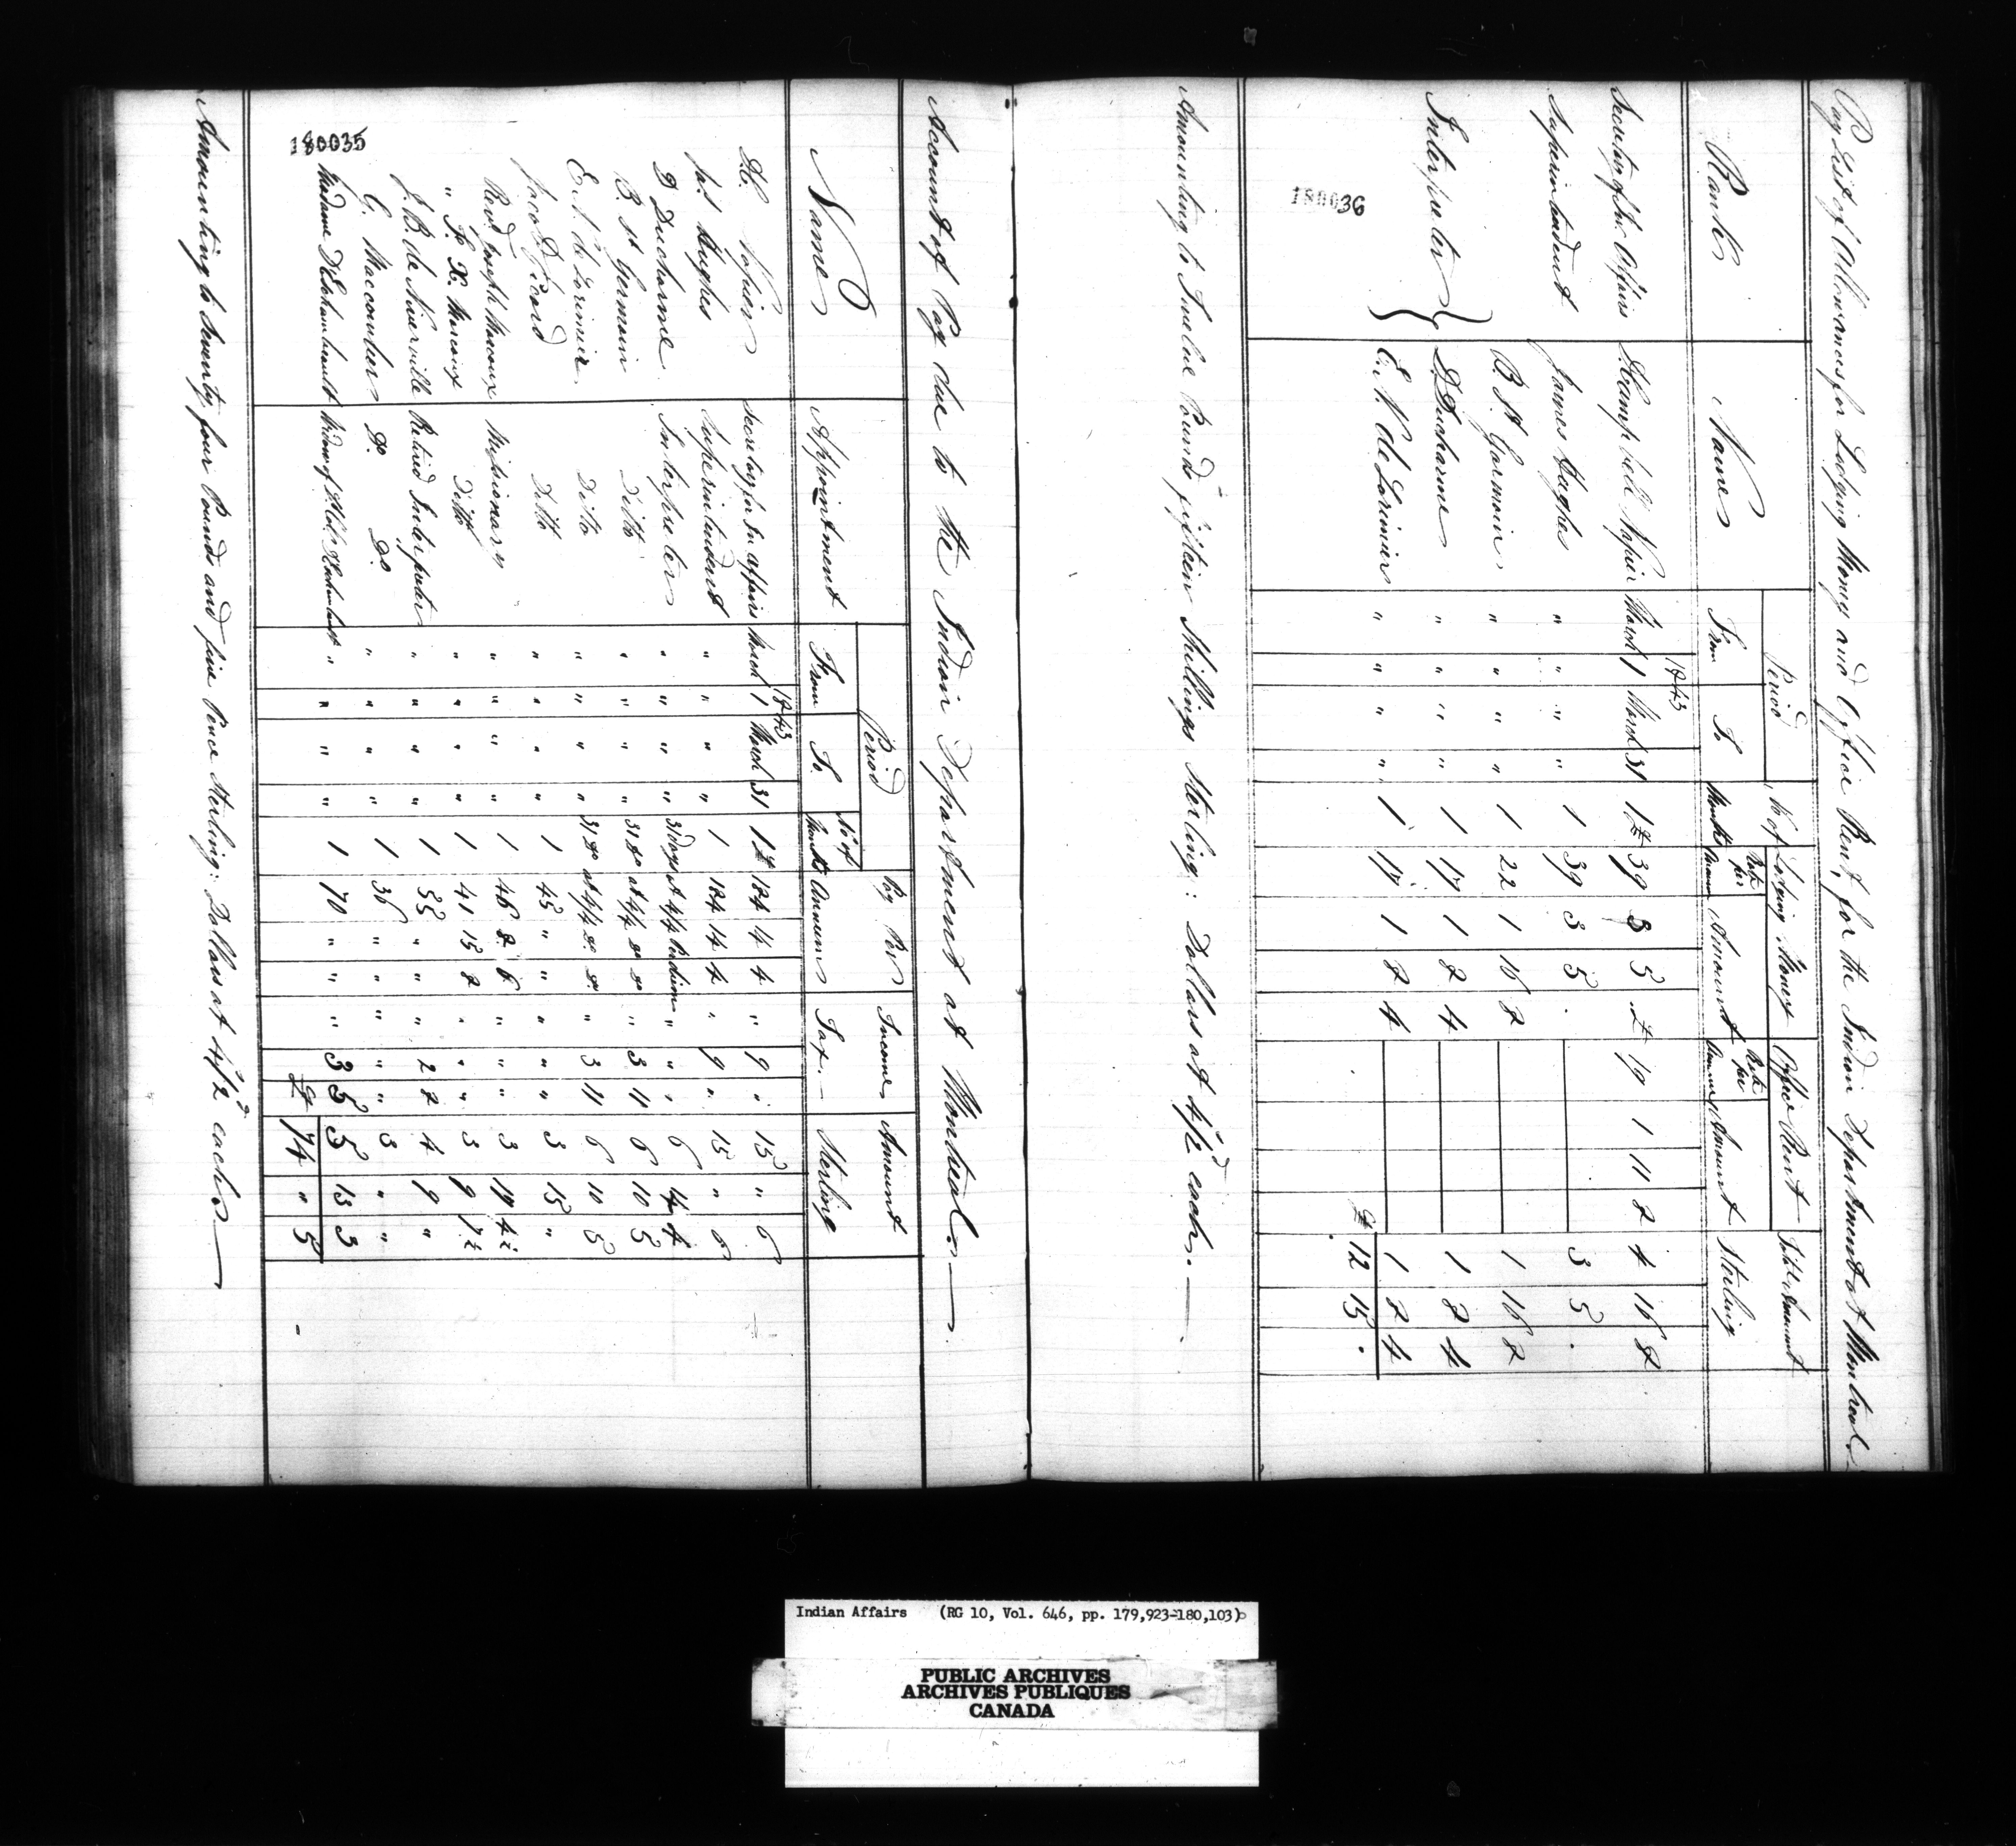 Pay List of Allowances for Lodging Money and Office Rent, for the Indian Department at Montreal
Rank Name Period No. of Months Lodging Money Office Rent Total Amount Sterling
From To Rate per Annum Amount Rate per Annum Amount
1843
Secretary for In. Affairs D. Campbell Napier March 1 March 31 1 £ 39 3 5 . £ 19 1 11 8 4 16 8
Superintendent James Hughes " " " " 1 39 3 5 . 3 5 .
Interpreter { B. St. Germain " " " " 1 22 1 16 8 1 16 8
D. Ducharme " " " " 1 17 1 8 4 1 8 4
E. N. de Lorimier " " " " 1 17 1 8 4 1 8 4
£ 12 15 .
Amounting to Twelve Pounds fifteen Shillings Sterling: Dollars at 4/2d each.
180036
Account of Pay due to the Indian Department at Montreal.
Name Appointment Period No. of Months Pay Per Annum Income Tax. Amount Sterling
From To
1843
D.C. Napier Secretary for In. affairs March 1 March 31 1 £ 184 4 4 " 9 " 15 " 6
Jas. Hughes Superintendent " " " " 1 184 14 4 " 9 " 15 " 6
D Ducharme Interpreter " " " " 31 days at 4/4 Per diem " " " 6 14 4
B. St Germain Ditto " " " " 31 do at 4/4 do do " 3 11 6 10 5
E. N. de Lorimier Ditto " " " " 31 do at 4/4 do do " 3 11 6 10 5
Jacob D Picard Ditto " " " " 1 45 " " " " " 3 15 "
Revd. Joseph Marcoux Missionary " " " " 1 46 8 6 " " " 3 17 4½
" F. X. Marcoux Ditto " " " " 1 41 15 8 " " " 3 9 7½
J. B. de Niverville Retired Interpreter " " " " 1 55 " " " 2 8 4 9 "
G. Maccomber Do. Do. " " " " 1 36 " " " " " 3 " "
Madame D'Echambault Widow of " " " " 1 70 " " " 3 5 5 13 3
£ 74 " 5
180035
Amounting to Seventy four Pounds and five Pence Sterling: Dollars at 4/2d each
Indian Affairs (RG 10, Vol. 646, pp. 179,923-180,103)
PUBLIC ARCHIVES
ARCHIVES PUBLIQUES
CANADA